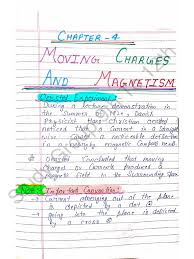 CHAPTER - 4
MOVING CHARGES
AND MAGNETISM
Oersted Experiment
During a lecture demonstration in
the Summer of 1820 a Danish
Physicist Hans Christian Oersted
noticed that a Current in a Straight
wire Caused a noticeable deflection
in a nearby magnetic Compass needle
Oersted Concluded that moving
Charges or Current produced a
Magnetic field in the Surrounding Space.
Important Convention
Current emerging out of the plane
is depicted by a dot
going into the plane is depicted
by a cross